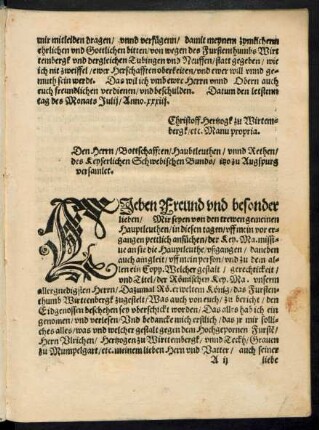 mir mitleiden dragen/ vnnd verfügenn/ damit meynenn zymlichenn
ehrlichen vnd Gottlichen bitten/ von wegen des Furstenthumbs Wir
tembergk vnd dergleichen Tubingen vnd Neuffen/ stat gegeben/ wie
ich nit zweiffel/ ewer Herschafften oberkeiten/ vnd ewer will vnnd ge-
muth sein werde. Das wil ich vmb ewre Herrn vnnd Obern auch
euch freundlichen verdienen/ vnd beschulden. Datum den letstenn
tag des Monats Julij/ Anno. xxxiij.
Christoff Hertzogk zu Wirtem-
bergk/ etc. Manu propria.
Den Herrn/ Bottschafften/ Haubtleuthen/ vnnd Rethen/
des Keyserlichen Schwebischen Bunds/ itzo zu Augspurg
versamlet.
LJeben Freund vnd besonder
lieben/ Mir seyen von den trewen gemeinen
Hauptleuthen/ in diesen tagen/ vff mein vor er-
gangen petlich ansuchen/ der Key. Ma. missi-
ue an sie die Hauptleuthe/ vsgangen/ daneben
auch angleit/ vff mein person/ vnd zu dem al
len ein Copy. Welcher gestalt/ gerechtickeit/
vnd Titel/ der Römischen Key. Ma. vnserm
aller gnedigsten Herrn/ Dazumal Rö. erweltem König/ das Fursten
thumb Wirttenbergk zugestelt/ Was auch von euch/ zu bericht/ den
Eidgenossen beschehen sey vberschyckt worden/ Das alles hab ich ein
genomen/ vnd verlesen/ Vnd bedancke mich erstlich/ das jr mir solli-
ches alles/ was vnd welcher gestalt gegen dem Hochgepornen Furst/
Herrn Vlrichen/ Hertzogen zu Wirttembergk/ vnnd Teckh/ Grauen
zu Mumpelgart/ etc. meinem lieben Herrn vnd Vatter/ auch seiner
A ij liebe